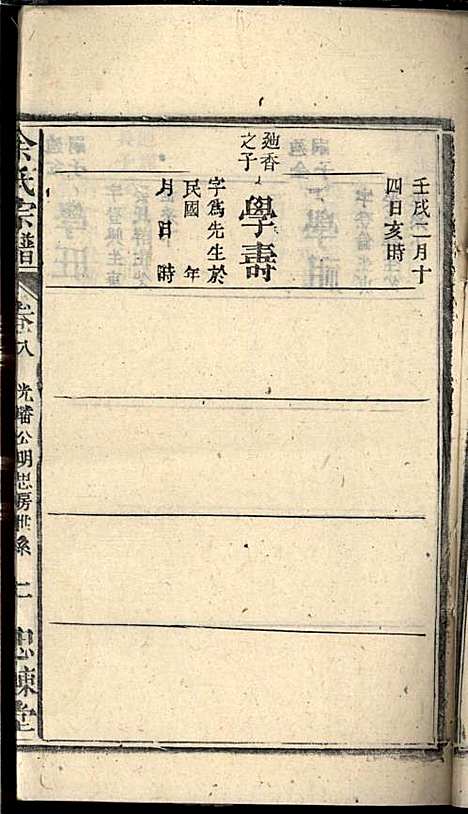 壬戌二月十
四日亥時
廸香
之子
學壽
字爲先生於
民國 年
月 日 時
余氏宗譜
卷八
光璠公明忠房世系
二
忠諫堂